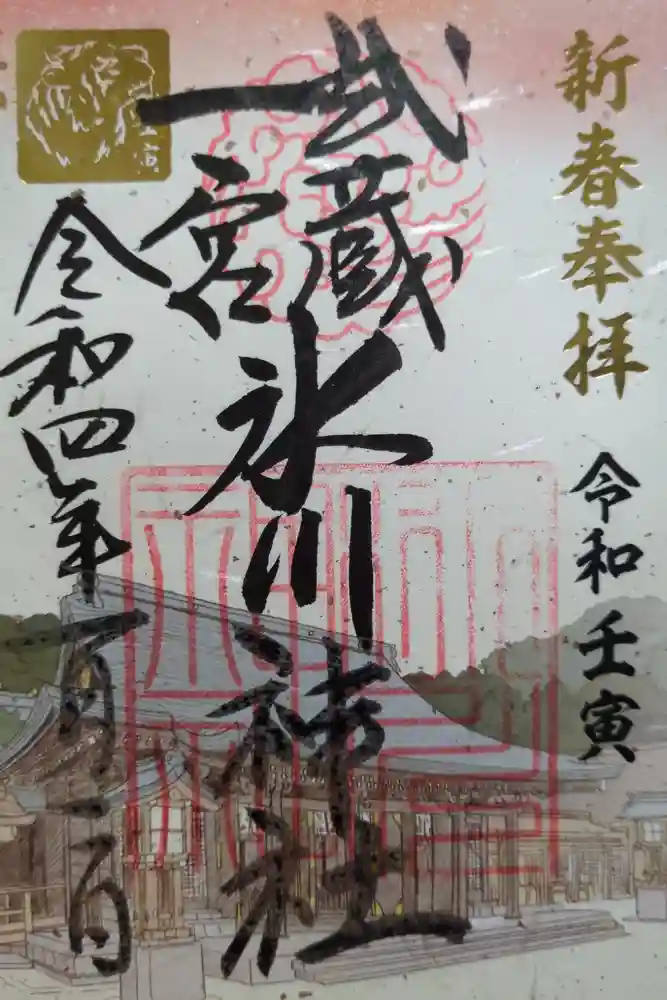 新春奉拝
令和壬寅
武蔵
一宮
氷川神社
令和四年一月二日
壬寅